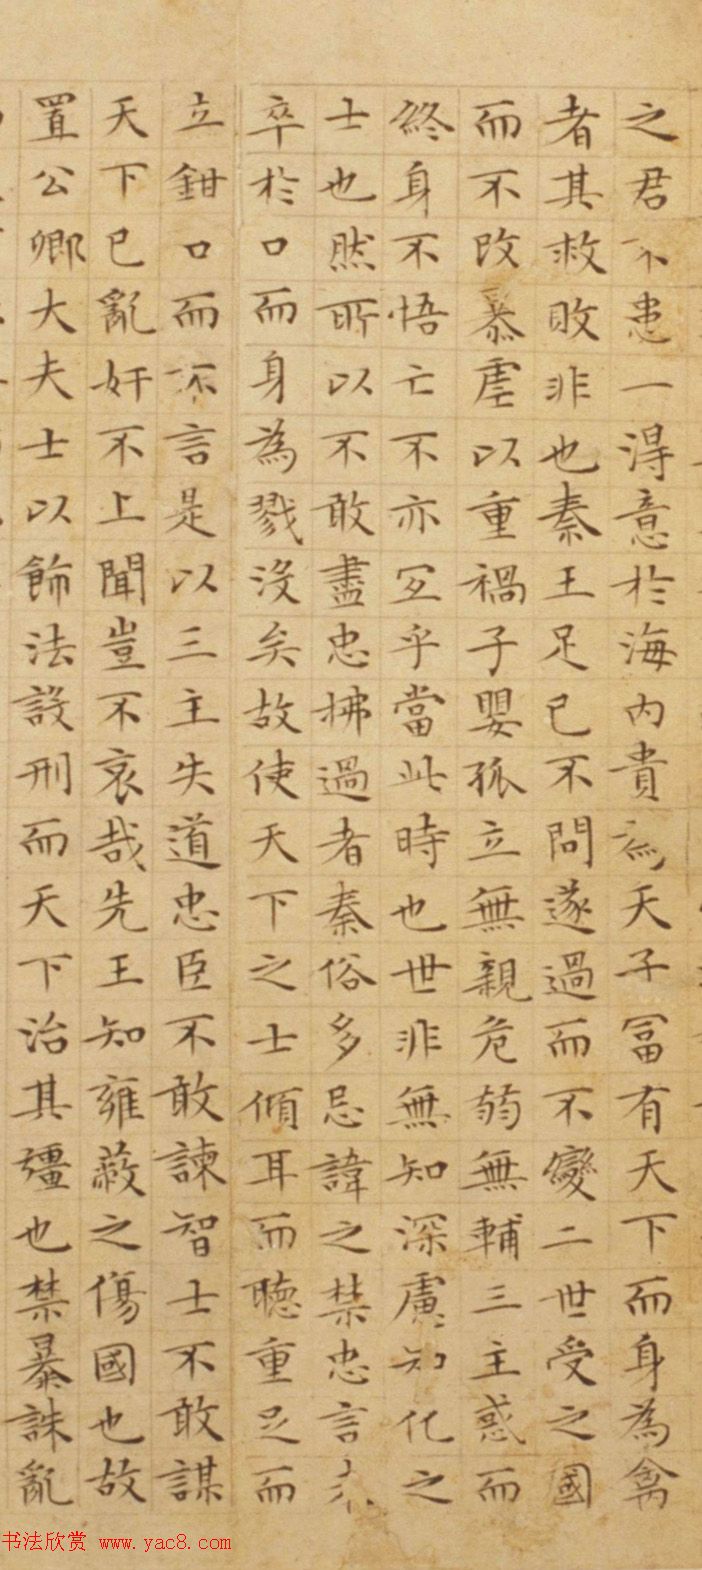 之君不患不得意於海內貴為天子富有天下而身為禽
者其救敗非也秦王足已不問遂過而不變二世受之國
而不改暴虐以重禍子嬰孤立無親危弱無輔三主惑而
終身不悟亡不亦宜乎當此時也世非無知深慮知化之
士也然所以不敢盡忠拂過者秦俗多忌諱之禁忠言未
卒於口而身為戮沒矣故使天下之士傾耳而聽重足而
立鉗口而不言是以三主失道忠臣不敢諫智士不敢謀
天下已亂奸不上聞豈不哀哉先王知雍蔽之傷國也故
置公卿大夫士以飾法設刑而天下治其彊也禁暴誅亂
书法欣赏 www.yac8.com